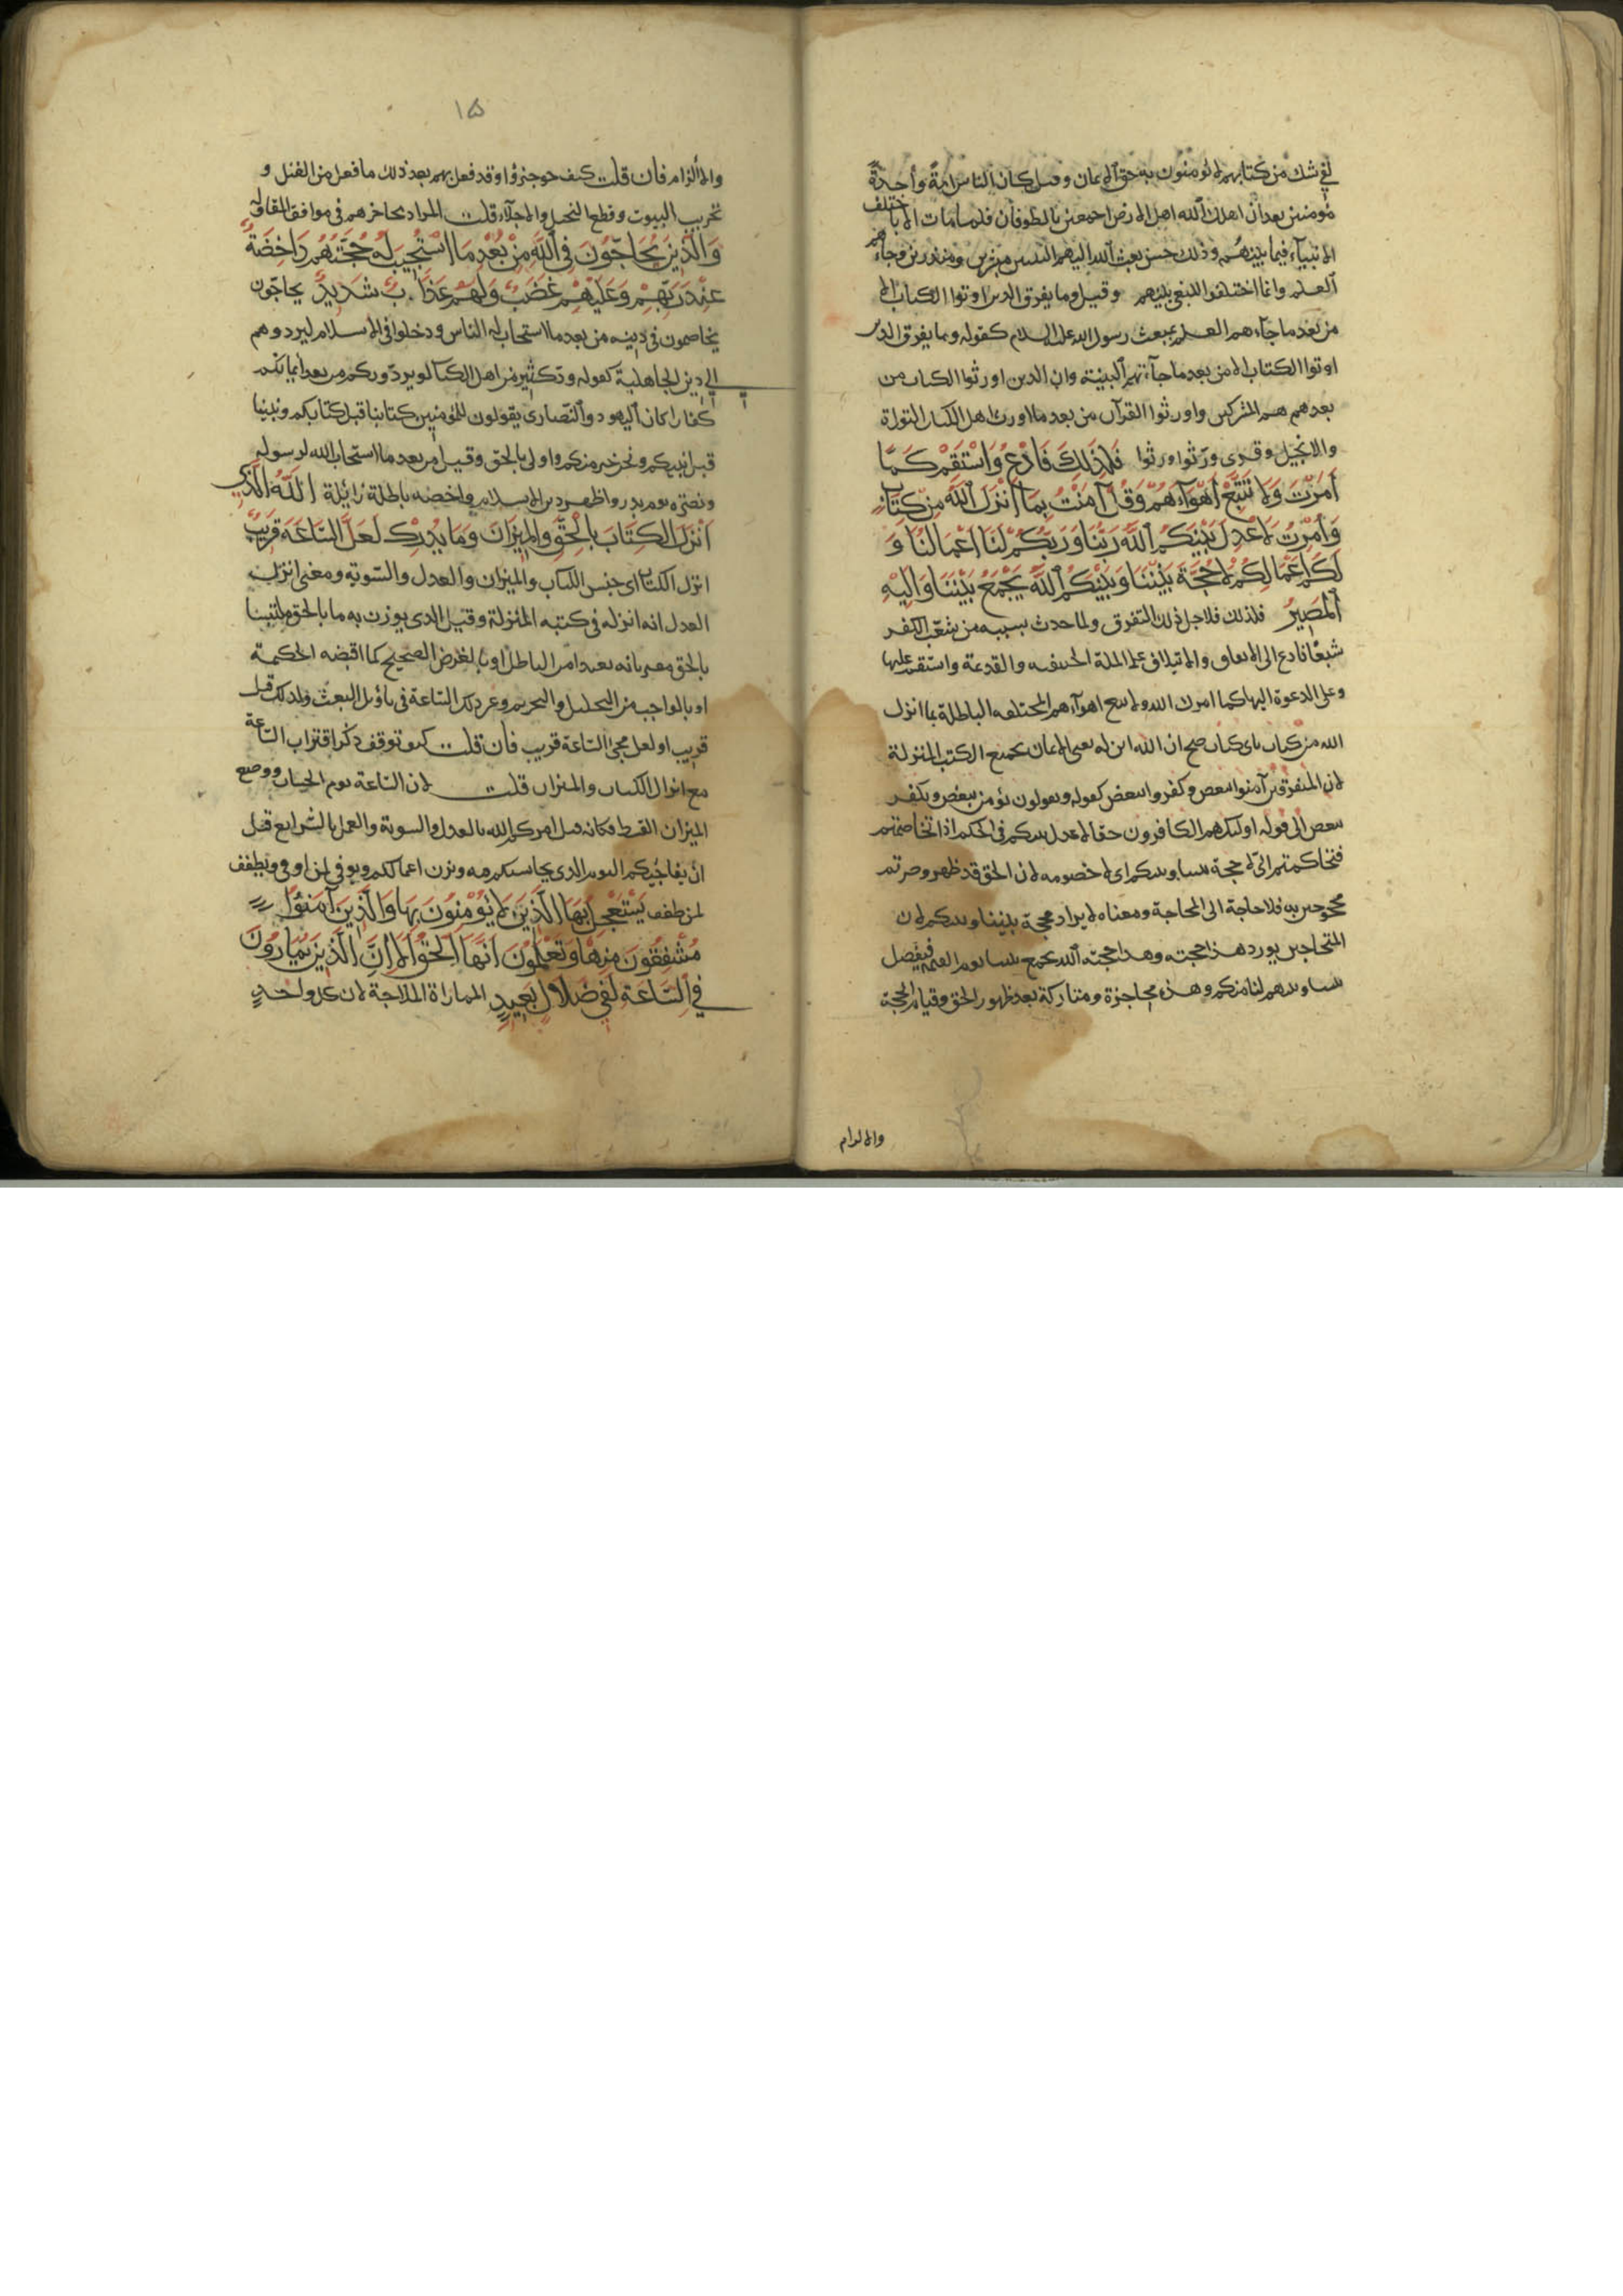 لفي شك من كتابهم لا يؤمنون به حق الايمان وقيل كان الناس امة واحدة
مؤمنين بعد ان اهلك الله اهل الارض اجمعين بالطوفان فلما مات الآباء اختلف
الابنياء فيما بينهم وذلك حين بعث الله اليهم النبيين مبشرين ومنذرين وجاءهم
العلم وانما اختلفوا للبغي بينهم وقيل وما تفرق الذين اوتوا الكتاب الا
من بعد ما جاءهم العلم بمبعث رسول الله عليه السلام كقوله وما تفرق الذين
اوتوا الكتاب الا من بعد ما جاءتهم البينة وان الذين اورثوا الكتاب من
بعدهم هم المشركين واورثوا القرآن من بعد ما اورث اهل الكتاب التوراة
والانجيل وقرئ ورثوا ورثوا فَلِذَلِكَ فَادْعُ وَاسْتَقِمْ كَمَا
اُمِرْتَ وَلَا تَتَّبِعْ اَهْوَآءَهُمْ وَقُلْ آمَنْتُ بِمَا اَنْزَلَ اللَّهُ مِنْ كِتَابٍ
وَاُمِرْتُ لِاَعْدِلَ بَيْنَكُمُ اللَّهُ رَبُّنَا وَرَبُّكُمْ لَنَا اَعْمَالُنَا وَ
لَكُمْ اَعْمَالُكُمْ لَا حُجَّةَ بَيْنَنَا وَبَيْنَكُمُ اللَّهُ يَجْمَعُ بَيْنَنَا وَاِلَيْهِ
الْمَصِيرُ فلذلك فلاجل ذلك التفرق ولما حدث بسببه من تشعب الكفر
شعبا فادع الى الاتفاق والائتلاف على الملة الحنيفية والقديمة واستقم عليها
وعلى الدعوة اليها كما امرك الله ولا تتبع اهوآءهم المختلفة الباطلة بما انزل
الله من كتاب باي كتاب صح ان الله انزله يعني الايمان بجميع الكتب المنزلة
لان المتفرقين آمنوا ببعض وكفروا ببعض كقوله ويقولون نؤمن ببعض ونكفر
ببعض الى قوله اولئك هم الكافرون حقا لاعدل بينكم في الحكم اذا تخاصمتم
فتحاكمتم الي لا حجة بيننا وبينكم اي لا خصومة لان الحق قد ظهر وصرتم
محجوجين به فلا حاجة الى المحاجة ومعناه لا ايراد حجة بيننا وبينكم لان
المتحاجين يورد هذا حجته وهذا حجته الله يجمع بيننا يوم القيمة فيفصل
بيننا وينتقم لنا منكم وهذه محاجزة ومتاركة بعد ظهور الحق وقيام الحجة
والالزام
١٥
والالزام فان قلت كيف حوجزوا وقد فعل بهم بعد ذلك ما فعل من القتل و
تخريب البيوت وقطع النخيل والاجلاء قلت المراد محاجزهم في مواقف المقاولة
وَالَّذِينَ يُحَاجُّونَ فِى اللَّهِ مِنْ بَعْدِ مَا اسْتُجِيبَ لَهُ حُجَّتُهُمْ دَاحِضَةٌ
عِنْدَ رَبِّهِمْ وَعَلَيْهِمْ غَضَبٌ وَلَهُمْ عَذَابٌ شَدِيدٌ يحاجون
يخاصمون في دينه من بعد ما استجاب له الناس ودخلوا في الاسلام ليردوهم
الى دين الجاهلية كقوله ود كثير من اهل الكتاب لو يردونكم من بعد ايمانكم
كفارا كان اليهود والنصارى يقولون للمؤمنين كتابنا قبل كتابكم ونبينا
قبل نبيكم ونحن خير منكم واولى بالحق وقيل من بعد ما استجاب الله لرسوله
ونصره يوم بدر واظهر دين الاسلام داحضة باطلة زائلة اَللَّهُ الَّذِى
اَنْزَلَ الْكِتَابَ بِالْحَقِّ وَالْمِيزَانَ وَمَا يُدْرِيكَ لَعَلَّ السَّاعَةَ قَرِيبٌ
انزل الكتاب اي جنس الكتاب والميزان والعدل والسوية ومعنى انزل
العدل انه انزله في كتبه المنزلة وقيل الذي يوزن به ما بالحق ملتبسا
بالحق مقترنا به بعيدا من الباطل او بالغرض الصحيح كما اقتضته الحكمة
او بالواجب من التحليل والتحريم وغير ذلك الساعة في تأويل البعث ولذلك قيل
قريب او لعل مجئ الساعة قريب فان قلت كيف توفق ذكر اقتراب الساعة
مع انزال الكتاب والميزان قلت لان الساعة يوم الحساب ووضع
الميزان القسط فكانه قيل امركم الله بالعدل والسوية والعمل بالشرايع قبل
ان يفاجئكم اليوم الذي يحاسبكم فيه ويزن اعمالكم ويوفي لمن اوفى ويطفف
لمن طفف يَسْتَعْجِلُ بِهَا الَّذِينَ لَا يُؤْمِنُونَ بِهَا وَالَّذِينَ آمَنُوا
مُشْفِقُونَ مِنْهَا وَيَعْلَمُونَ اَنَّهَا الْحَقُّ اَلَا اِنَّ الَّذِينَ يُمَارُونَ
فِى السَّاعَةِ لَفِى ضَلَالٍ بَعِيدٍ المماراة الملاجة لان كل واحد